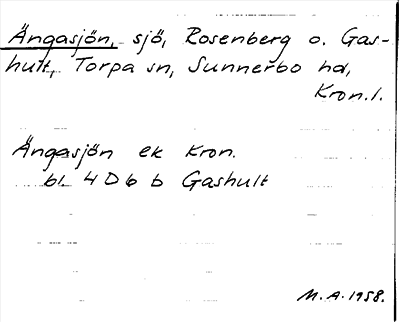 Ängasjön, sjö, Rosenberg o. Gas-
hult, Torpa sn, Sunnerbo hd,
Kron.l.
Ängasjön ek Kron.
bl. 4 D 6 b Gashult
M.A. 1958.